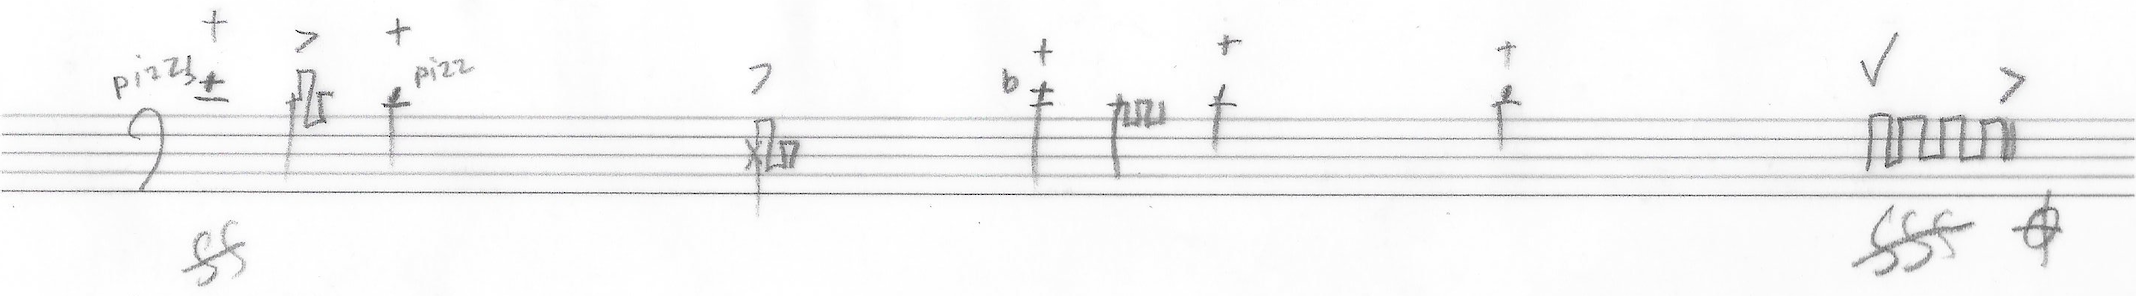 pizz pizz
ff fff